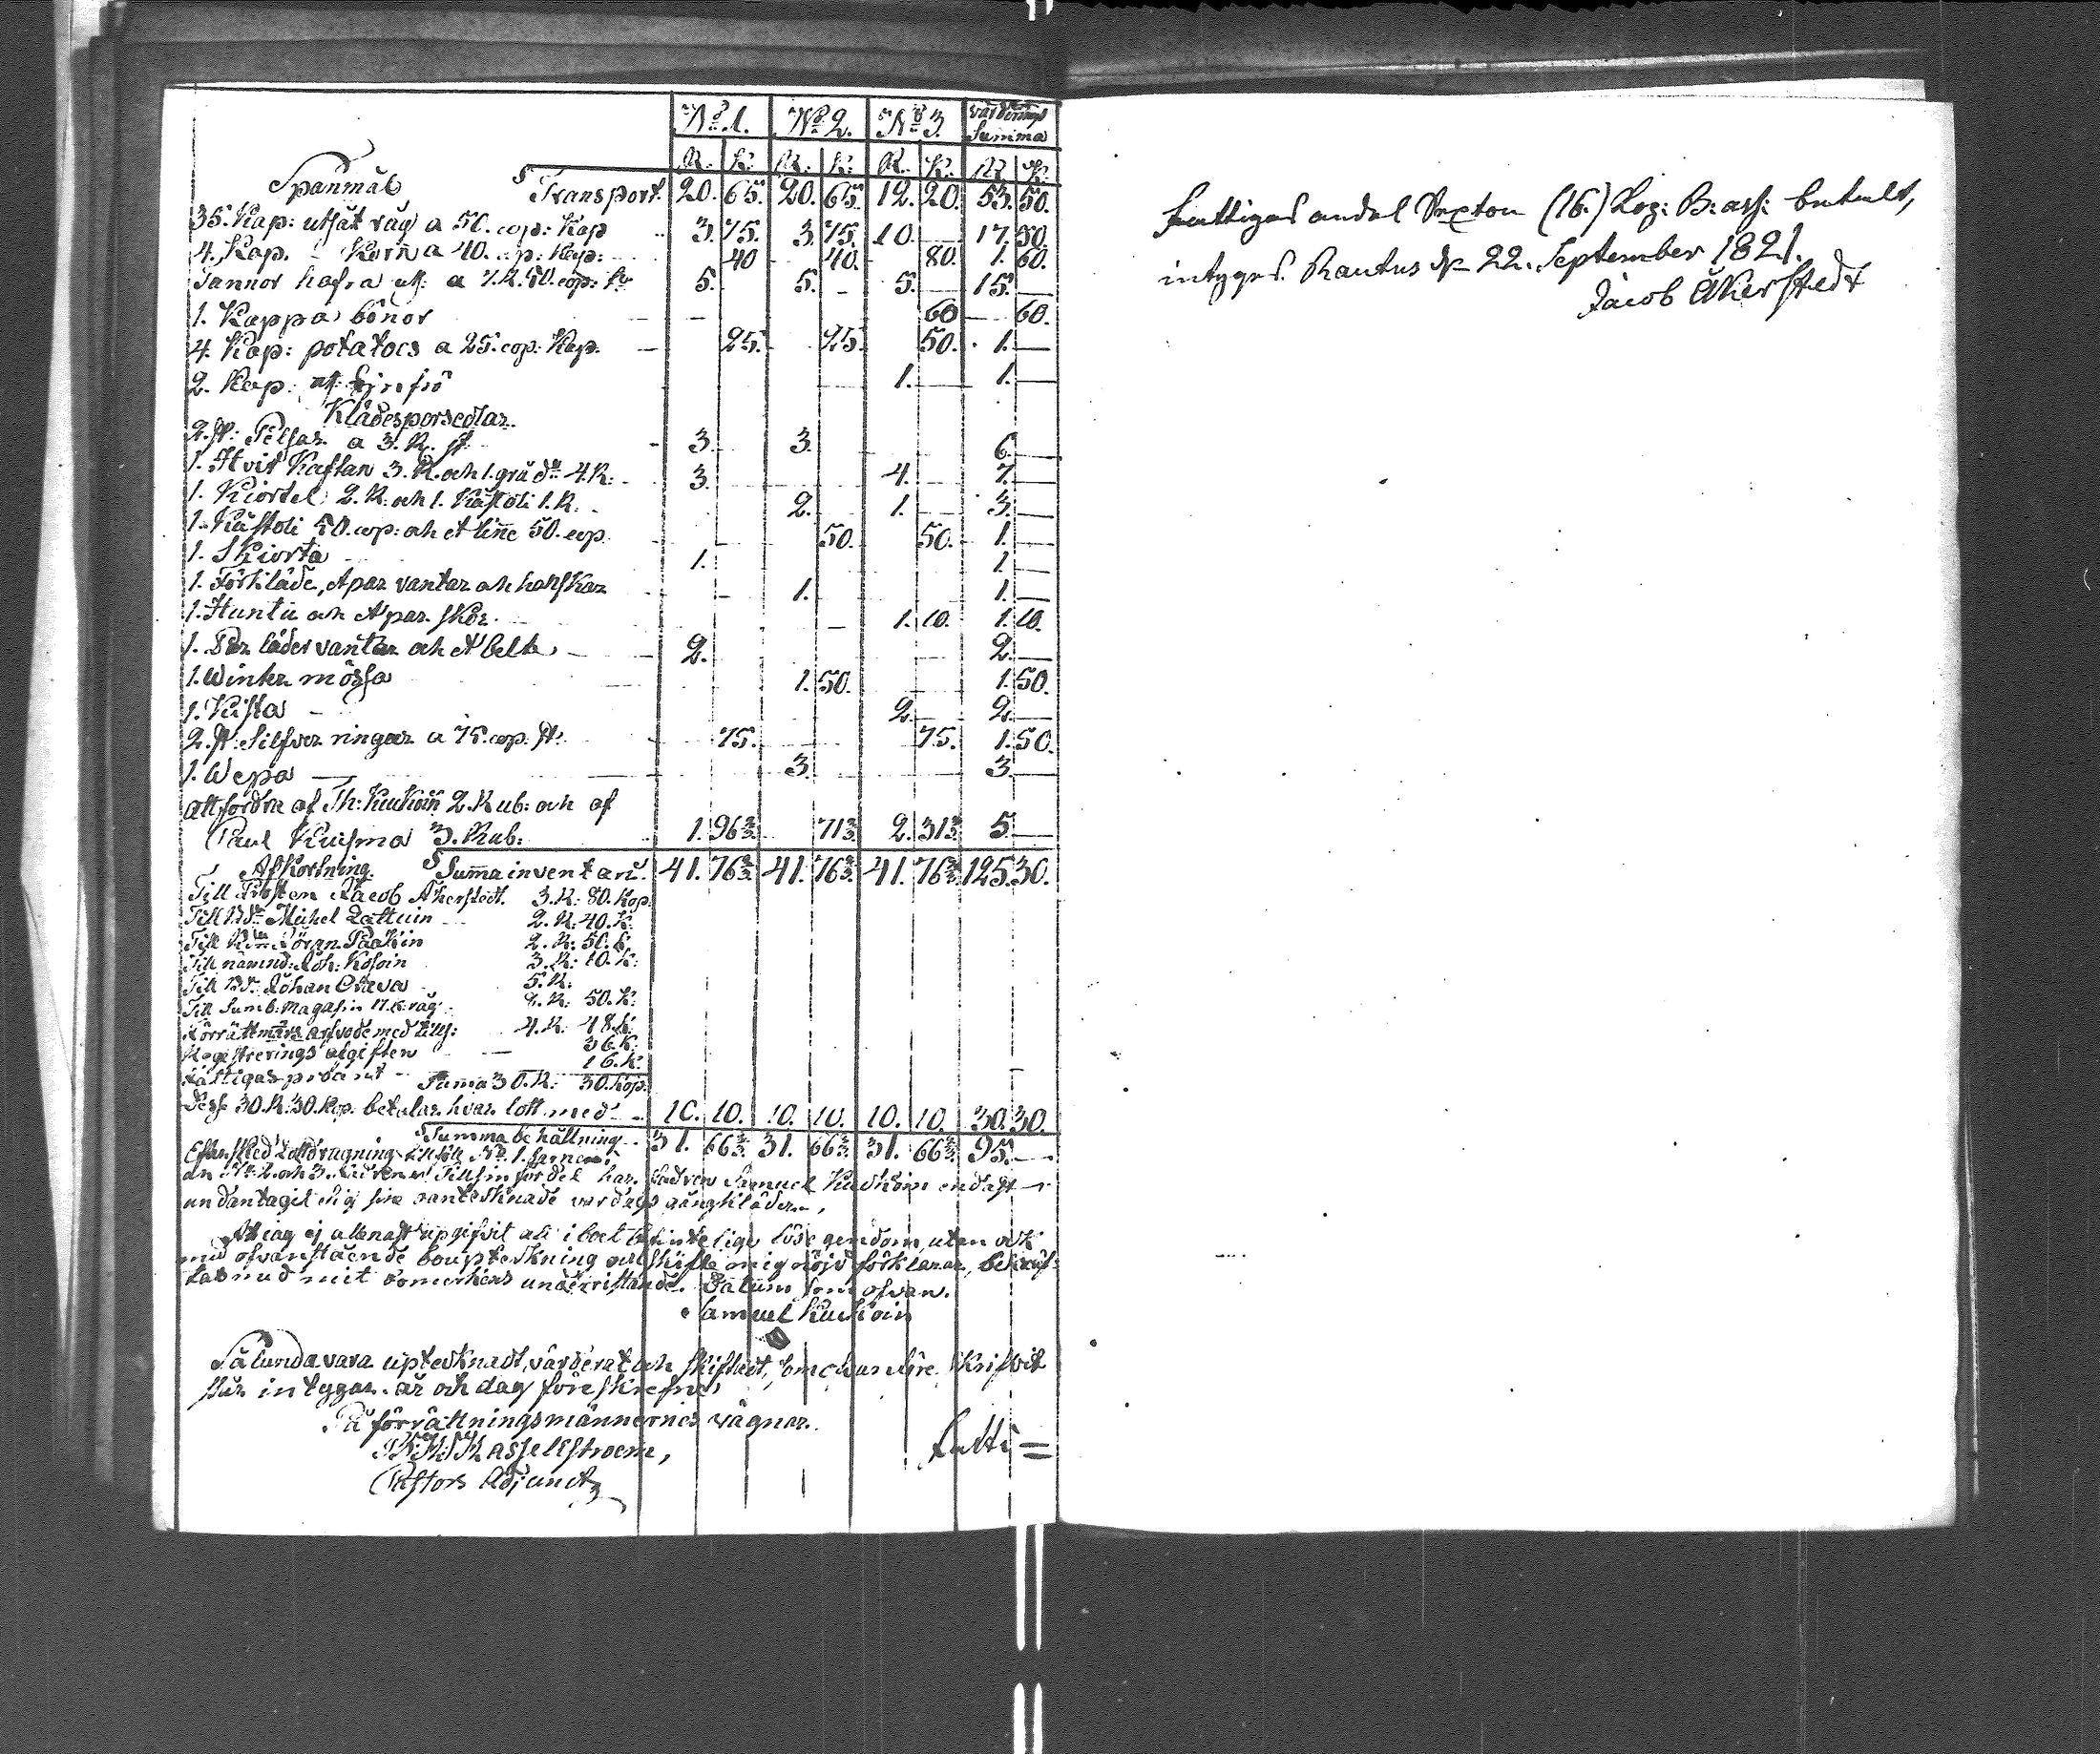 No 1. No 2. No 3. värderings Summa
R. K. R. K. R. K. R. K.
Spanmål
Transport 20. 65. 20. 65. 12. 20. 53. 50.
35. Kap: utsåt råg a 50. cop: Kap 3. 75. 3. 75. 10. — 17. 50.
4. Kap. Korn a 40. cop: Kap: 40 40. 80. 1. 60.
Tannor hafra a 50. cop: 5. 5. 5. 15. —
1. Kappa bönor 60 60.
4. Kap: potatoes a 25. cop: Kap. 25. 25. 50. 1. —
2. Kap: 1. 1. —
Klädespersedlar.
2. st: Pelsar a 3. R. st 3. 3. 6. —
1. Hvit Kaftan 3. R. och 1. grå do 4. R. 3. 4. 7. —
1. Kiortel 2. R. och 1. Kåstoli 1. R. 2. 1. 3. —
1. Kåstoli 50. cop: och et linne 50. cop. 50. 50. 1. —
1. Skiorta 1. 1. —
1. Förkläde, et par vantar och hanskar 1. 1. —
1. Huntu och et par skor 1. 10. 1. 10.
1. Par läder vantar och et belte 2. 2. —
1. Winter mössa 1. 50. 1. 50.
1. Kista 2. 2. —
2. st: Silfver ringar a 75. cop. st: 75. 75. 1. 50.
1. Wepa 3. 3. —
att fordra af Th: Kuckoin 2. Rub: och af
Paul Kuisma 3. Rub. 1. 96⅔ 71⅔ 2. 31⅔ 5. —
Afkortning. Summa inventarii. 41. 76⅔. 41. 76⅔. 41. 76⅔ 125. 30.
Till Prosten Jacob Åkerstedt. 3. R: 80. Kop:
Till Michel Lattuin 2. R: 40. K:
Till Göran Paakin 2. R: 50. K.
Till nämnd: Joh: Kosoin 3. R: 10. K:
Till Johan Orava 5. R:
Till Sumb: Magasin råg 50. K:
Förrättmäns arfvode med 4. R: 48 K.
Registrerings afgiften 36. K.
fattigas procent 16. K:
Summa 30. R: 30. Kop.
Dess 30. R: 30. Kop. betalar hvar lott med 10. 10. 10. 10. 10. 10. 30. 30.
Summa behållning 31. 66⅔ 31. 66⅔ 31. 66⅔ 95. —
Efter sked Lottdragning tillföll No 1.
No 2. och 3. Till sin fördel har Fadren Samuel Kuckoin endast
undantagit sig sina oantecknade vardags gångkläder.
At jag ej allenast upgifvit all i boet befintelige lösegendom, utan ock
med ofvanstående bouptekning och skifte mig nöjd förklarar, bekräf-
tas med mit bomerkens underritande. Datum som ofvan.
Samuel Kuckoin
Sålunda vara uptecknadt, värderat och skiftadt,
intygar. år och dag föreskrefne
På förrättningsmännernes vägnar.
Kasselstroem,
Pastors Adjunct
Fatti=
Fattigas andel Sexton (16.) Kop: B: ass: betalt,
intygas Rautus d. 22. September 1821.
Jacob Åkerstedt